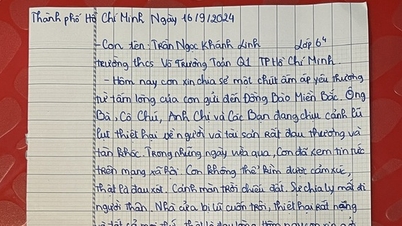 Thành phố Hồ Chí Minh, Ngày 16/9/2024
- Con tên: Trần Ngọc Khánh Linh Lớp 6⁴
trường thcs Võ Trường Toản Q1 TP Hồ Chí Minh.
- Hôm nay con xin chia sẻ một chút ấm áp yêu thương
từ tấm lòng của con gửi đến Đồng Bào Miền Bắc. Ông
Bà, Cô Chú, Anh Chị và Các Bạn đang chịu cảnh bị
lụt thiệt hại về người và tài sản rất đau thương và
tàn khốc. Trong những ngày vừa qua, con đã xem tin tức
trên mạng xã hội. Con không thể kìm được cảm xúc,
thật là đau xót. Cảnh màn trời chiếu đất. Sự chia ly mất đi
người thân. Nhà cửa bị lũ cuốn trôi, thiệt hại rất nặng